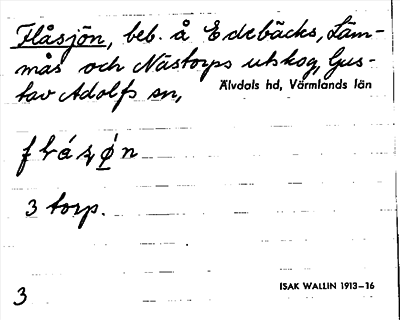 Flåsjön, beb. å Edebäcks, Läm-
mås och Nästorps utskog, Gus-
tav Adolfs sn, Älvdals hd, Värmlands län
3 torp.
3
ISAK WALLIN 1913–16